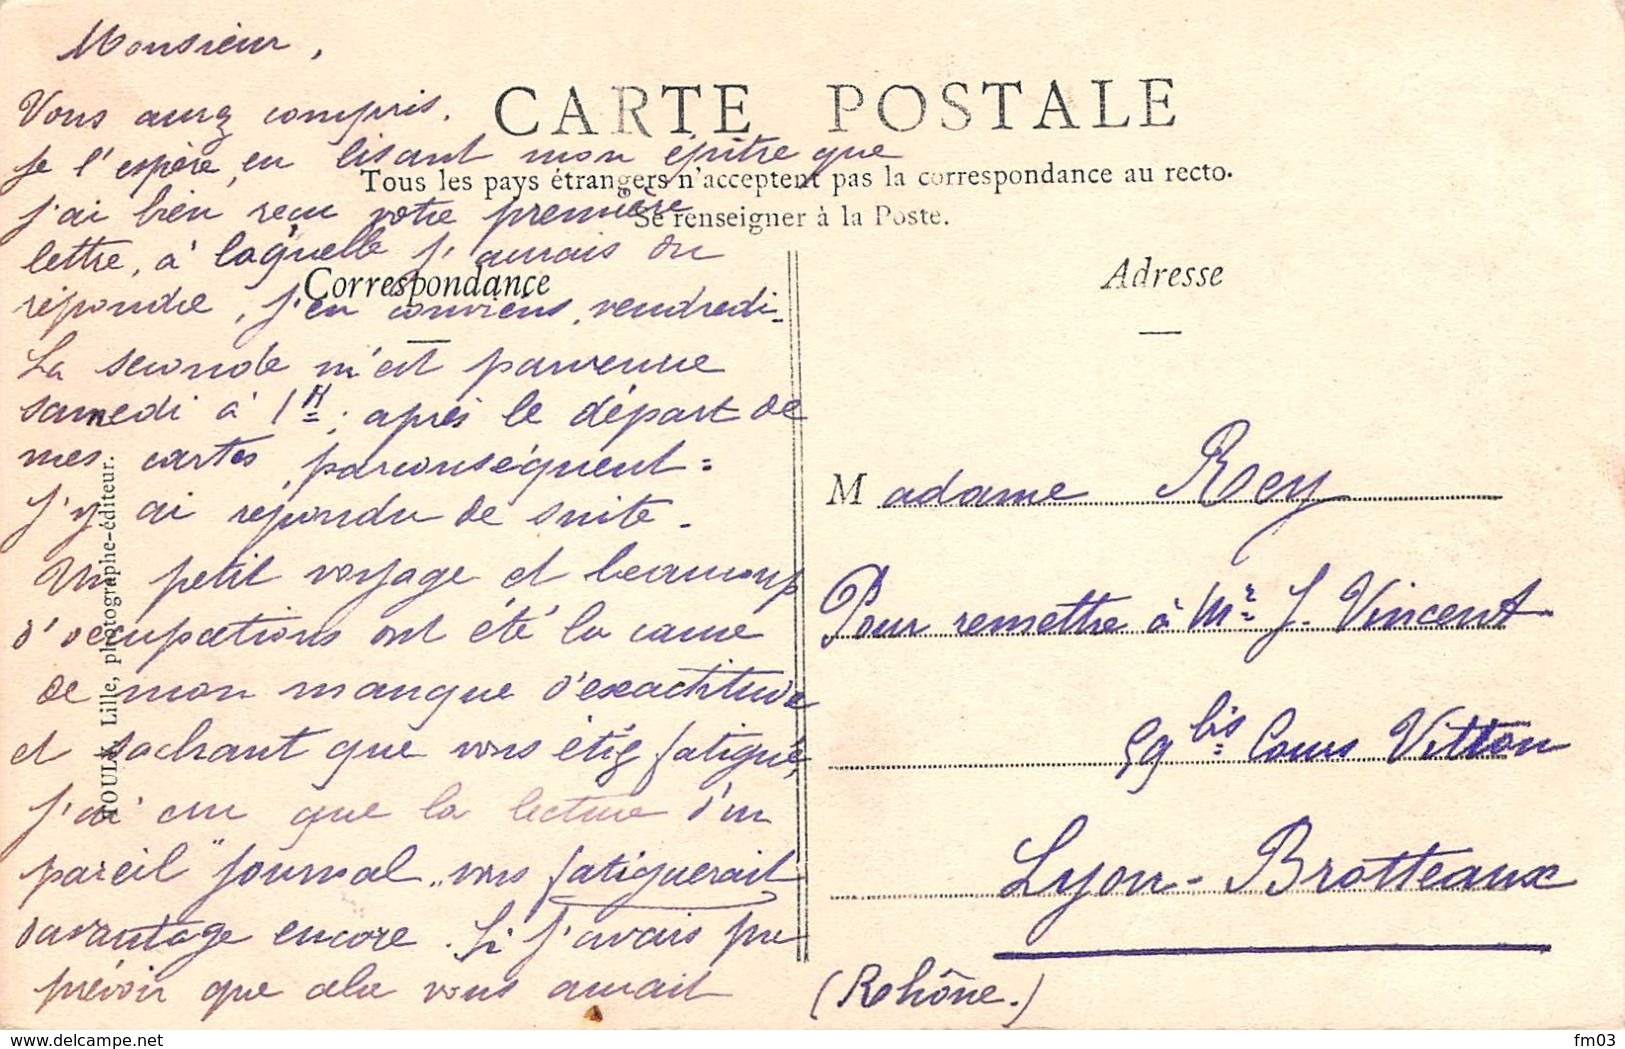 Monsieur,
Vous aurez compris,
CARTE POSTALE
je l'espère, en lisant mon épître que
Tous les pays étrangers n'acceptent pas la correspondance au recto.
j'ai bien reçu votre première
Se renseigner à la Poste.
lettre, à laquelle j'aurais du
Correspondance
répondre, j'en conviens, vendredi.
La seconde m'est parvenue
samedi à 1H, après le départ de
mes cartes, parconséquent =
J'y ai répondu de suite.
Un petit voyage et beaucoup
d'occupations ont été la cause
de mon manque d'exactitude
et sachant que vous étiez fatigué,
j'ai cru que la lecture d'un
pareil "journal" vous fatiguerait
davantage encore. Si j'avais pu
prévoir que cela vous aurait
Lille, photographe-éditeur.
Adresse
Madame Rey
Pour remettre à Mr J. Vincent
59 bis Cours Vitton
Lyon-Brotteaux
(Rhône.)
delcampe.net
fm03